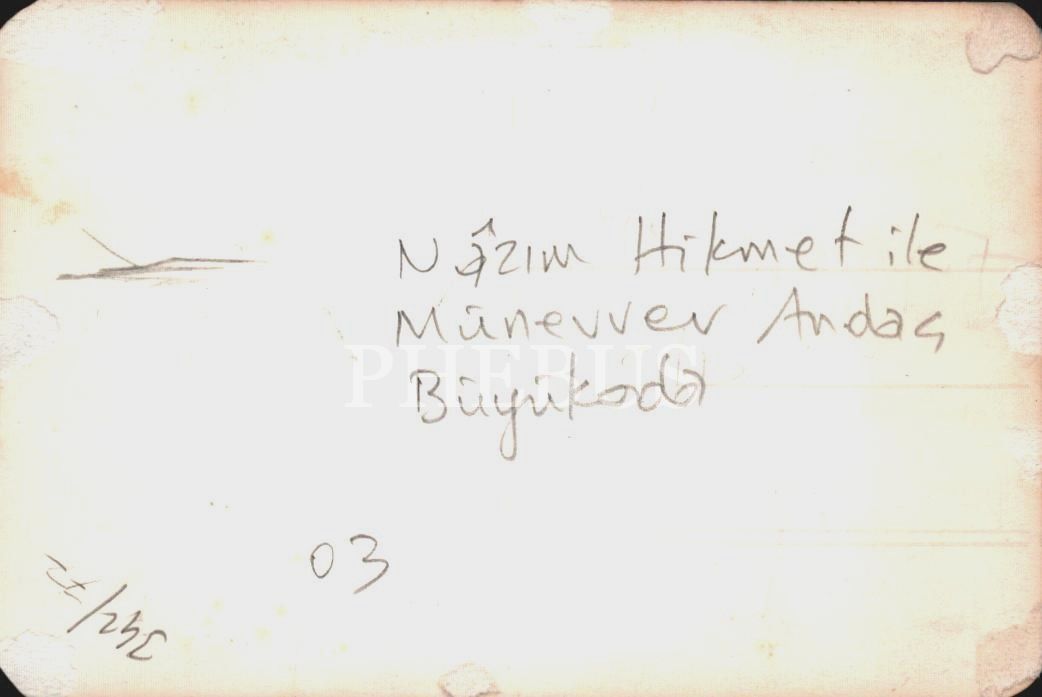 Nâzım Hikmet ile
Münevver Andaç
Büyükada
PHEBUS
03